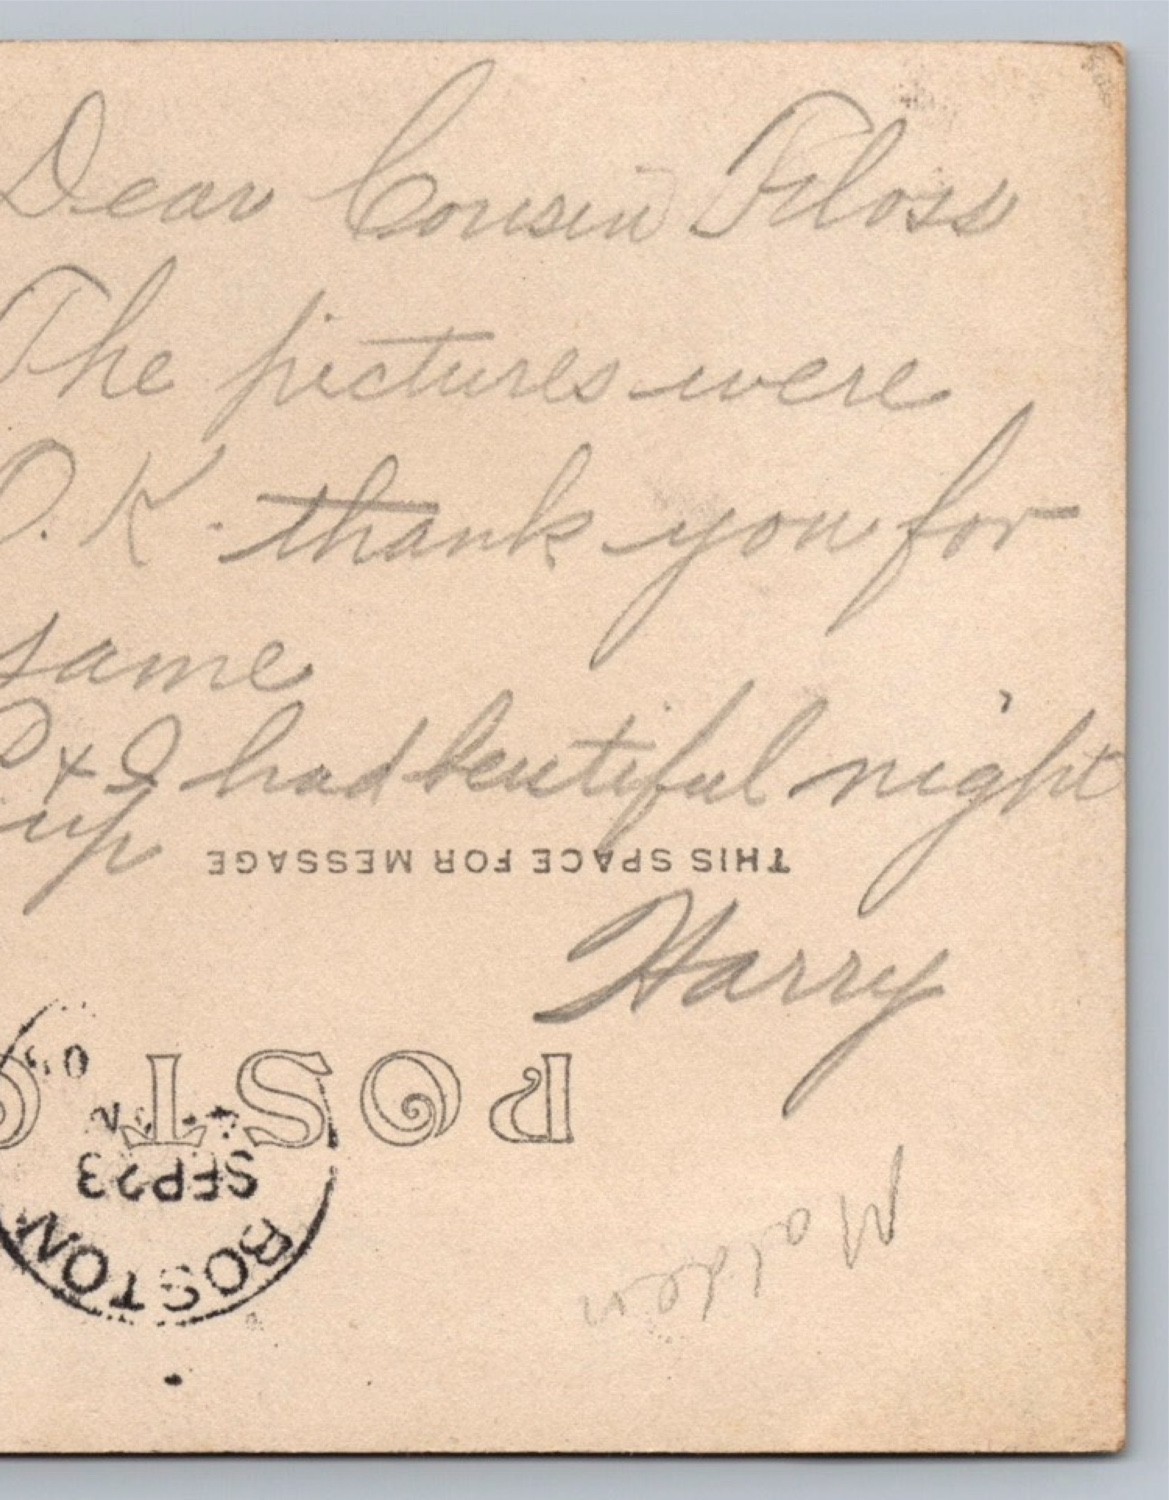 Dear Cousin Floss
The pictures were
O.K. thank you for
same
P & I had beutiful night
up
THIS SPACE FOR MESSAGE
Harry
POST
SEP 23
BOSTON
Malden